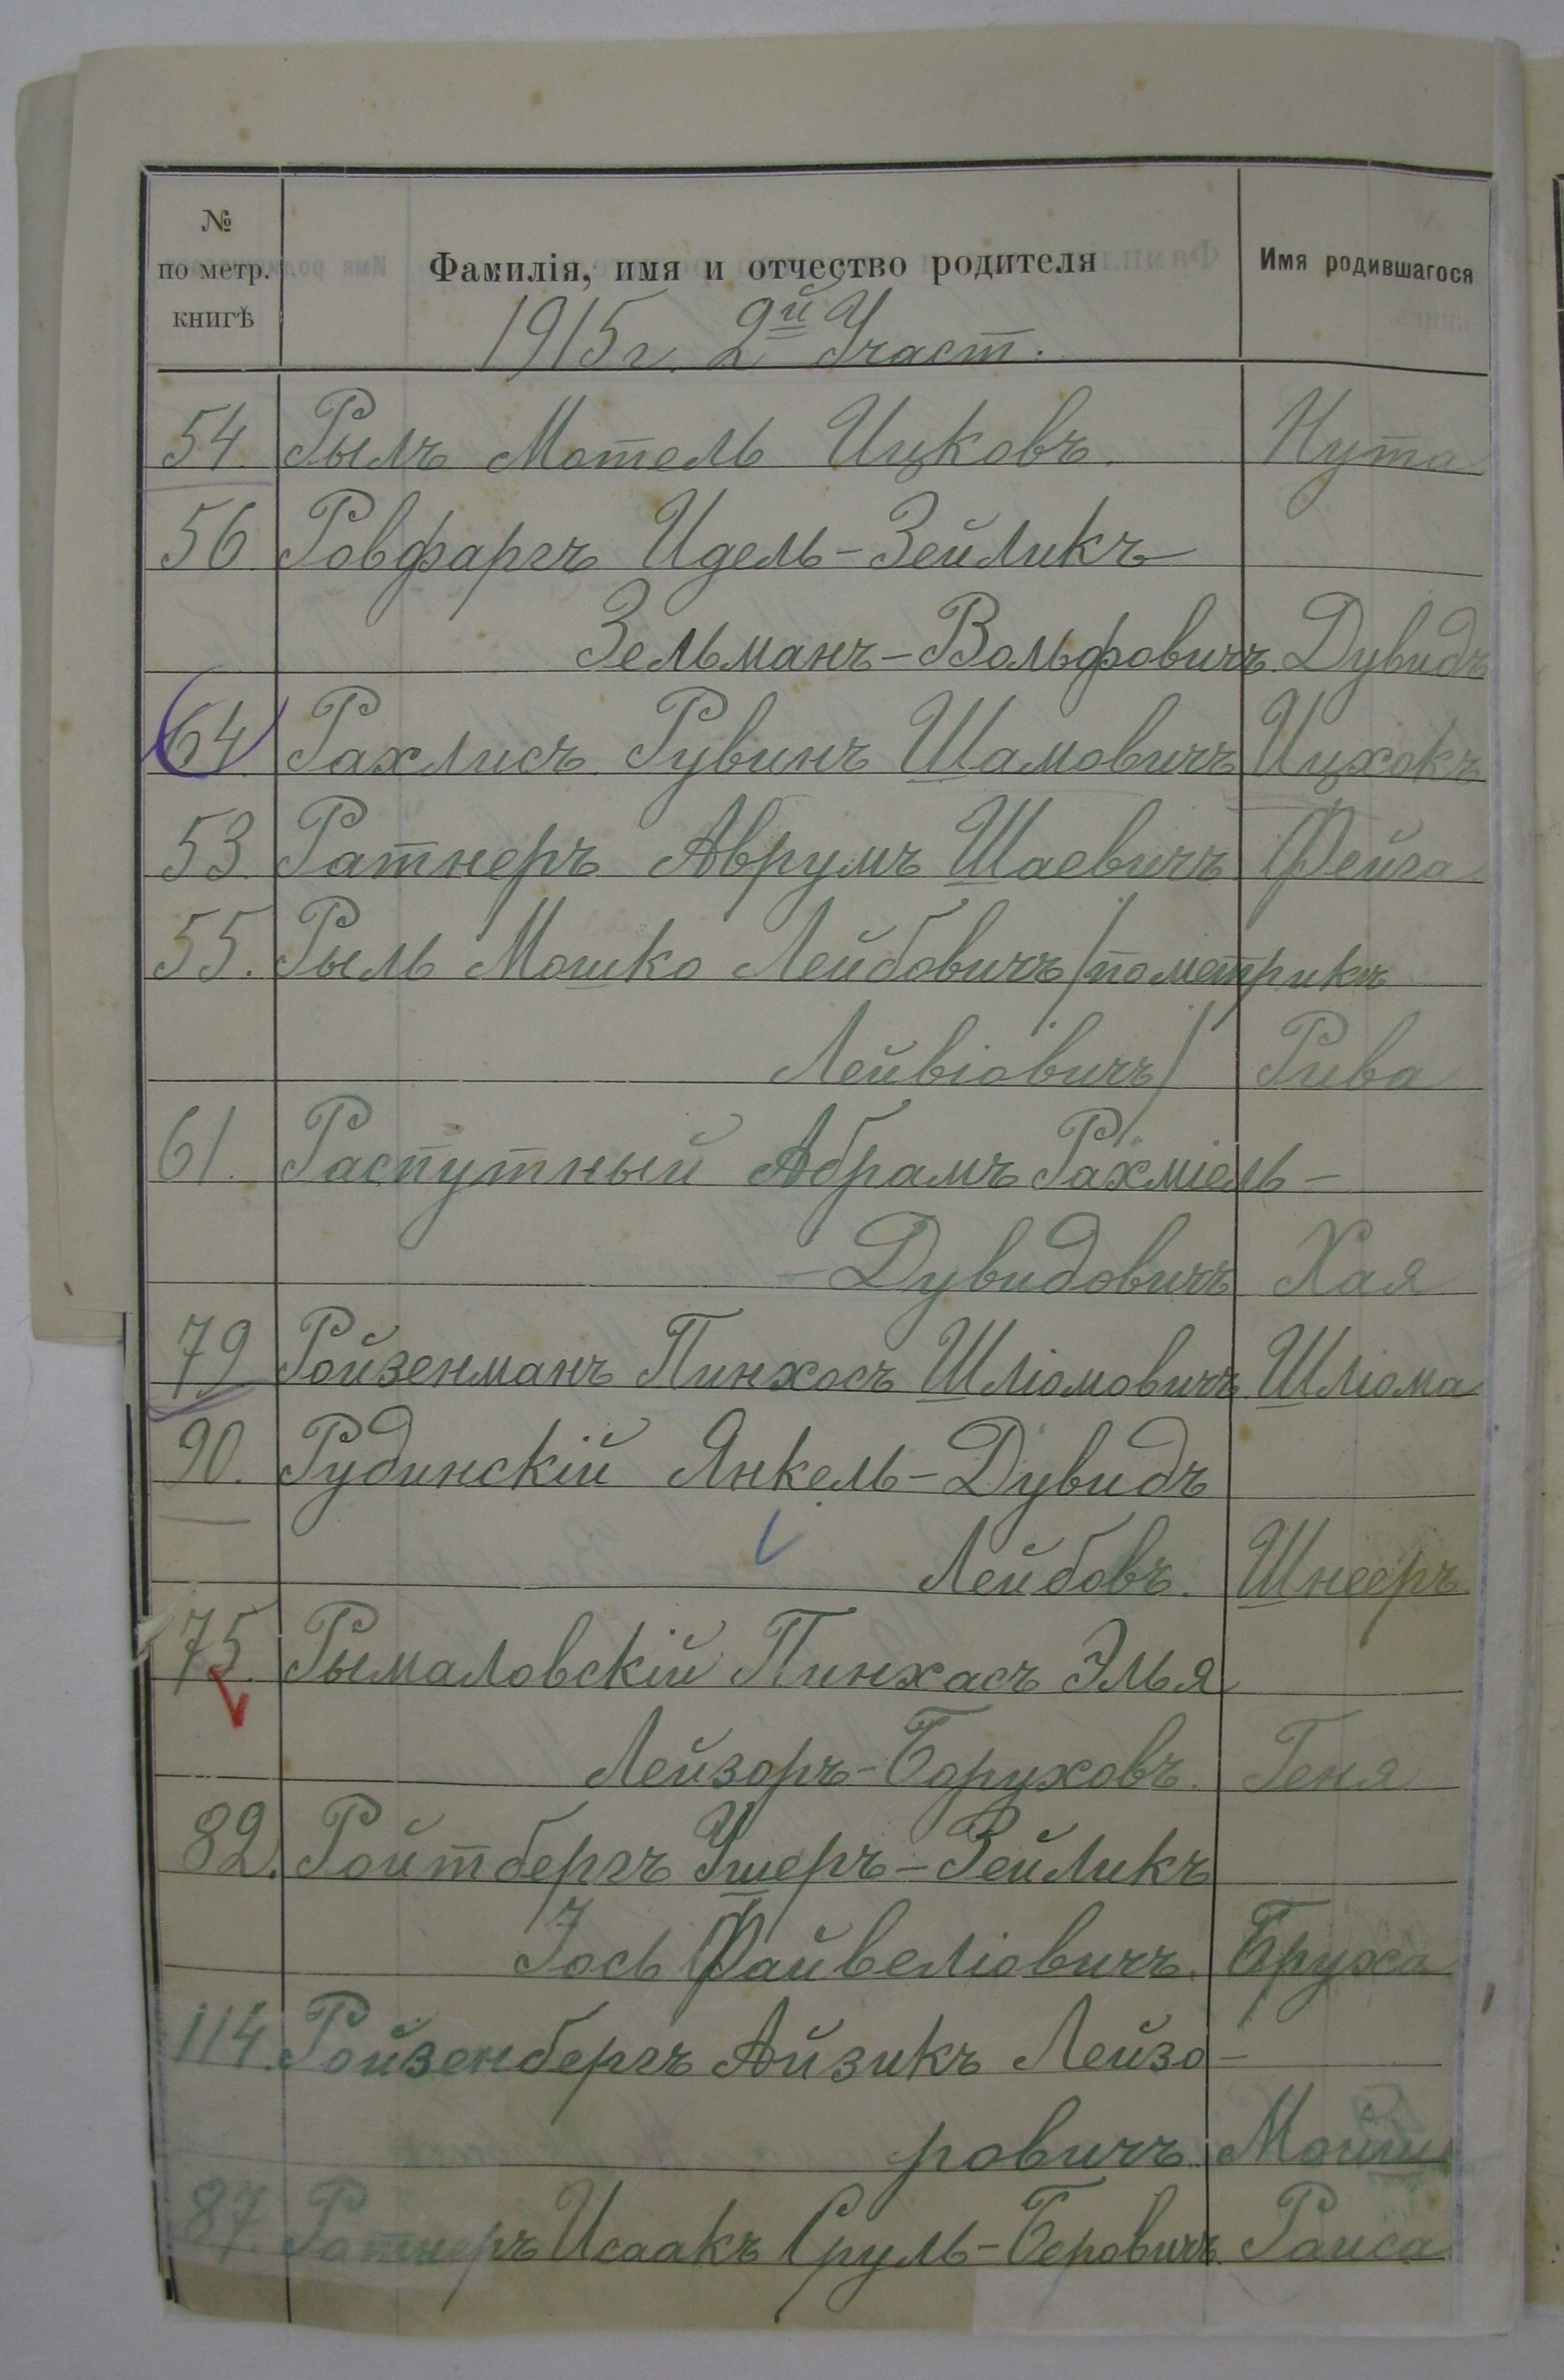 № по метр. книгѣ
Фамилія, имя и отчество родителя
Имя родившагося
1915 г. 2й Участ.
54. Рылъ Мотель Ицковъ. Нута
56. Ровфаргъ Идель-Зейликъ
Зельманъ-Вольфовичъ. Дувидъ
64. Рахлисъ Рувинъ Шамовичъ Ицхокъ
53. Ратнеръ Аврумъ Шаевичъ Фейга
55. Рыль Мошко Лейбовичъ /по метрикѣ
Лейвіовичъ/ Рива
61. Распутный Абрамъ Рахміель-
-Дувидовичъ Хая
79 Ройзенманъ Пинхосъ Шліомовичъ Шліома
90. Рудинскій Янкель-Дувидъ
Лейбовъ. Шнееръ
75. Рымаловскій Пинхасъ Элья
Лейзоръ-Боруховъ. Геня
82. Ройтбергъ Ушеръ-Зейликъ
Іось Файвеліовичъ. Бруха
114. Ройзенбергъ Айзикъ Лейзо-
ровичъ. Мойш
87. Ратнеръ Исаакъ Сруль-Беровичъ. Раиса